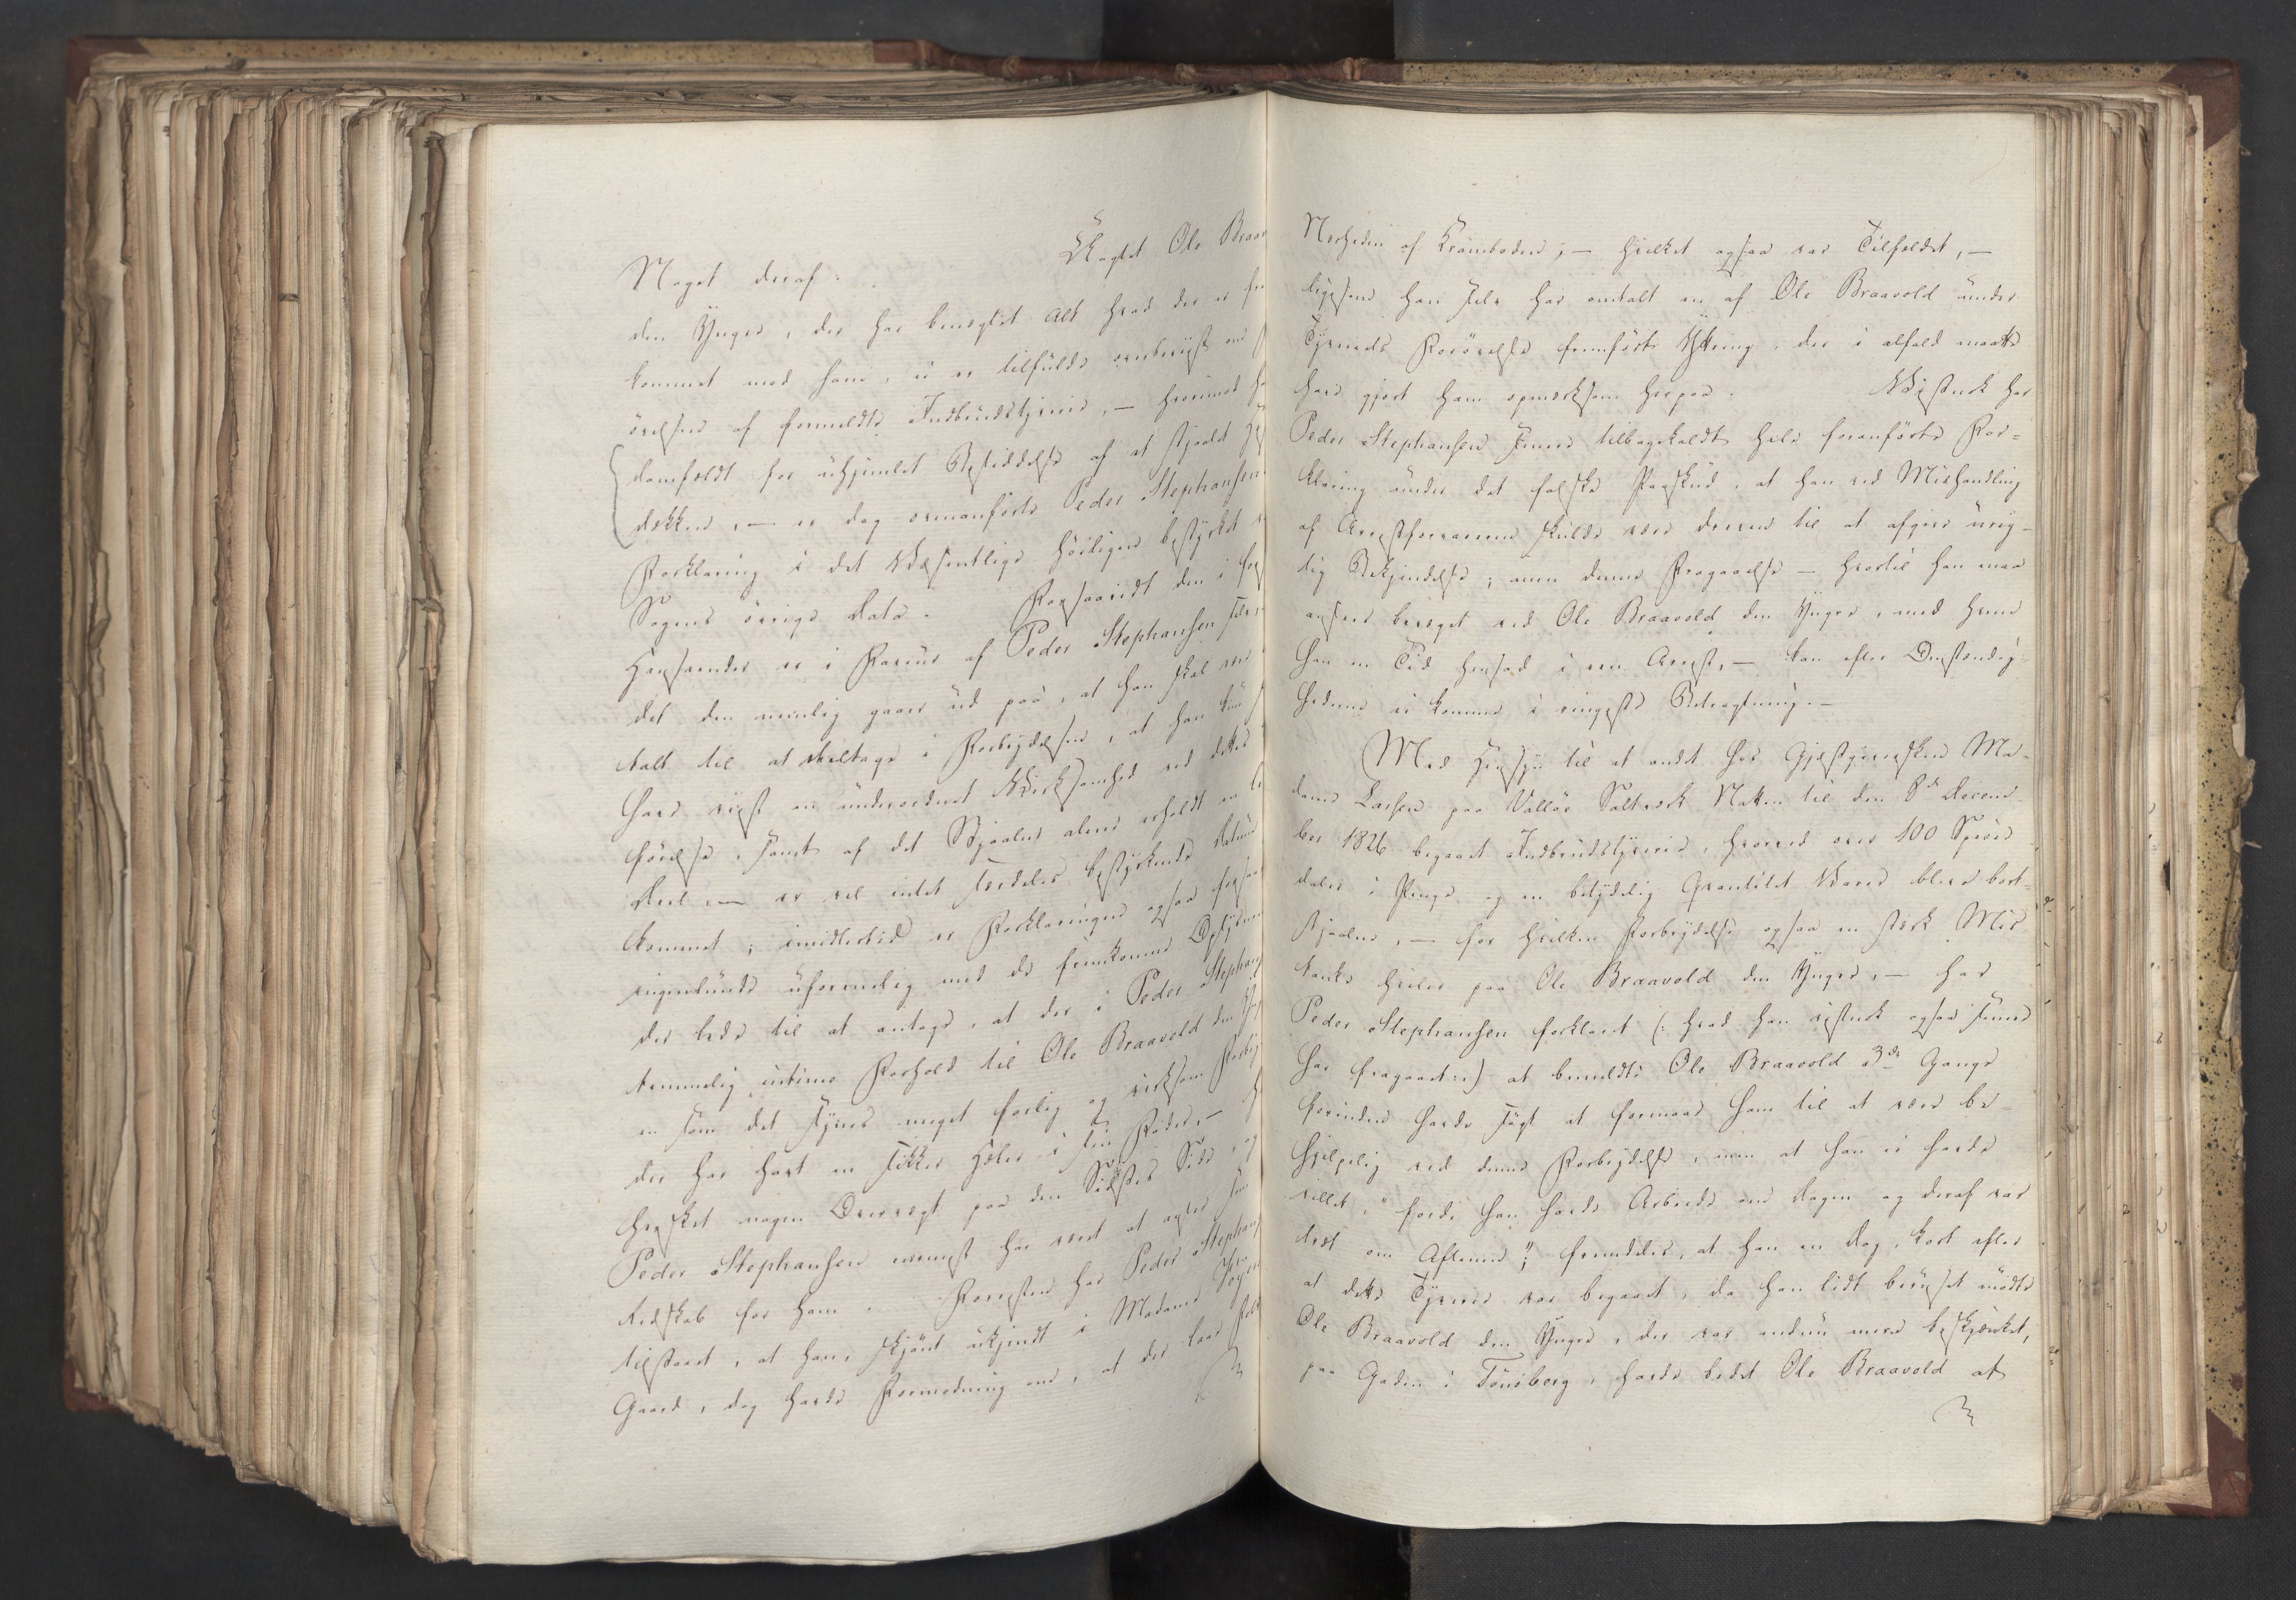 Noget deraf. Skogtet Ole Braa
den Yngre, der har benegtet alt hvad der er frem
kommet mod ham, ei er tilfulde overbeviist om
øvelsen af formeldte Indbrudstyverie, — hvorimod
domfældt for uhjemlet Besiddelse af et stjaalet
dækken, — er dog ovenanførte Peder Stephansen
Forklaring i det Væsentlige høiligen bestyrket
Sagens øvrige Data. Forsaavidt den i
Henseender er i Faveur af Peder Stephansen selv
det den nemlig gaaer ud paa, at han skal være
talt til at deeltage i Forbrydelsen, at han kun
have viist en underordnet Virksomhed ved dettes
førelse, samt af det Stjaalne alene erholdt en
Deel, — er vel intet særdeles bestyrkende Datum
kommet; imidlertid er Forklaringen ogsaa forsaa
ingenlunde uforenelig med de fremkomne Oplysn
der lede til at antage, at der i Peder Stephan
temmelig intime Forhold til Ole Braavold den Yng
en som det synes meget farlig og virksom Forbry
der har havt en sikker Hæler i sin Fader, —
hersket nogen Overvægt paa den Sidstes Side, og
Peder Stephansen nærmest har været at agte som
Redskab for ham. Foresten har Peder Stephan
tilstaaet, at han, skjønt ukjendt i Madame
Gaard, dog havde Formodning om, at der laae
Nærheden af Kramboden, — hvilket ogsaa var Tilfældet, —
ligesom han selv har omtalt en af Ole Braavold under
Tyveriets Forøvelse fremført Yttring, der i alfald maatte
have gjort ham opmærksom herpaa. Vistnok har
Peder Stephansen senere tilbagekaldt hele foranførte For-
klaring under det falske Paaskud, at han ved Mishandling
af Arrestforvareren skulde være dreven til at afgive urig-
tig Bekjendelse; men denne Fragaaelse — hvortil han maa
ansees bevæget ved Ole Braavold den Yngre, med hvem
han en Tid hensad i een Arrest, — kan efter Omstændig-
hederne ei komme i ringeste Betragtning. —
Med Hensyn til et andet hos Gjæstgiversken Ma-
dame Larsen paa Valløe Saltværk Natten til den 8de Decem-
ber 1826 begaaet Indbrudstyverie, hvorved over 100 Specie
daler i Penge og en betydelig Qvantitet Varer bleve bort-
stjaalne, — for hvilken Forbrydelse ogsaa en stærk Mis-
tanke hviler paa Ole Braavold den Yngre, — har
Peder Stephansen forklaret (: hvad han vistnok ogsaa senere
har fragaaet :) at bemeldte Ole Braavold 3de Gange
forinden havde søgt at formaae ham til at være be-
hjelpelig ved denne Forbrydelse, men at han ei havde
villet, "fordi han havde Arbeide om Dagen og deraf var
træt om Aftenen"; fremdeles, at han en Dag, kort efter
at dette Tyverie var begaaet, da han lidt beruset mødte
Ole Braavold den Yngre, der var endnu mere beskjænket,
paa Gaden i Tønsberg, havde bedet Ole Braavold at